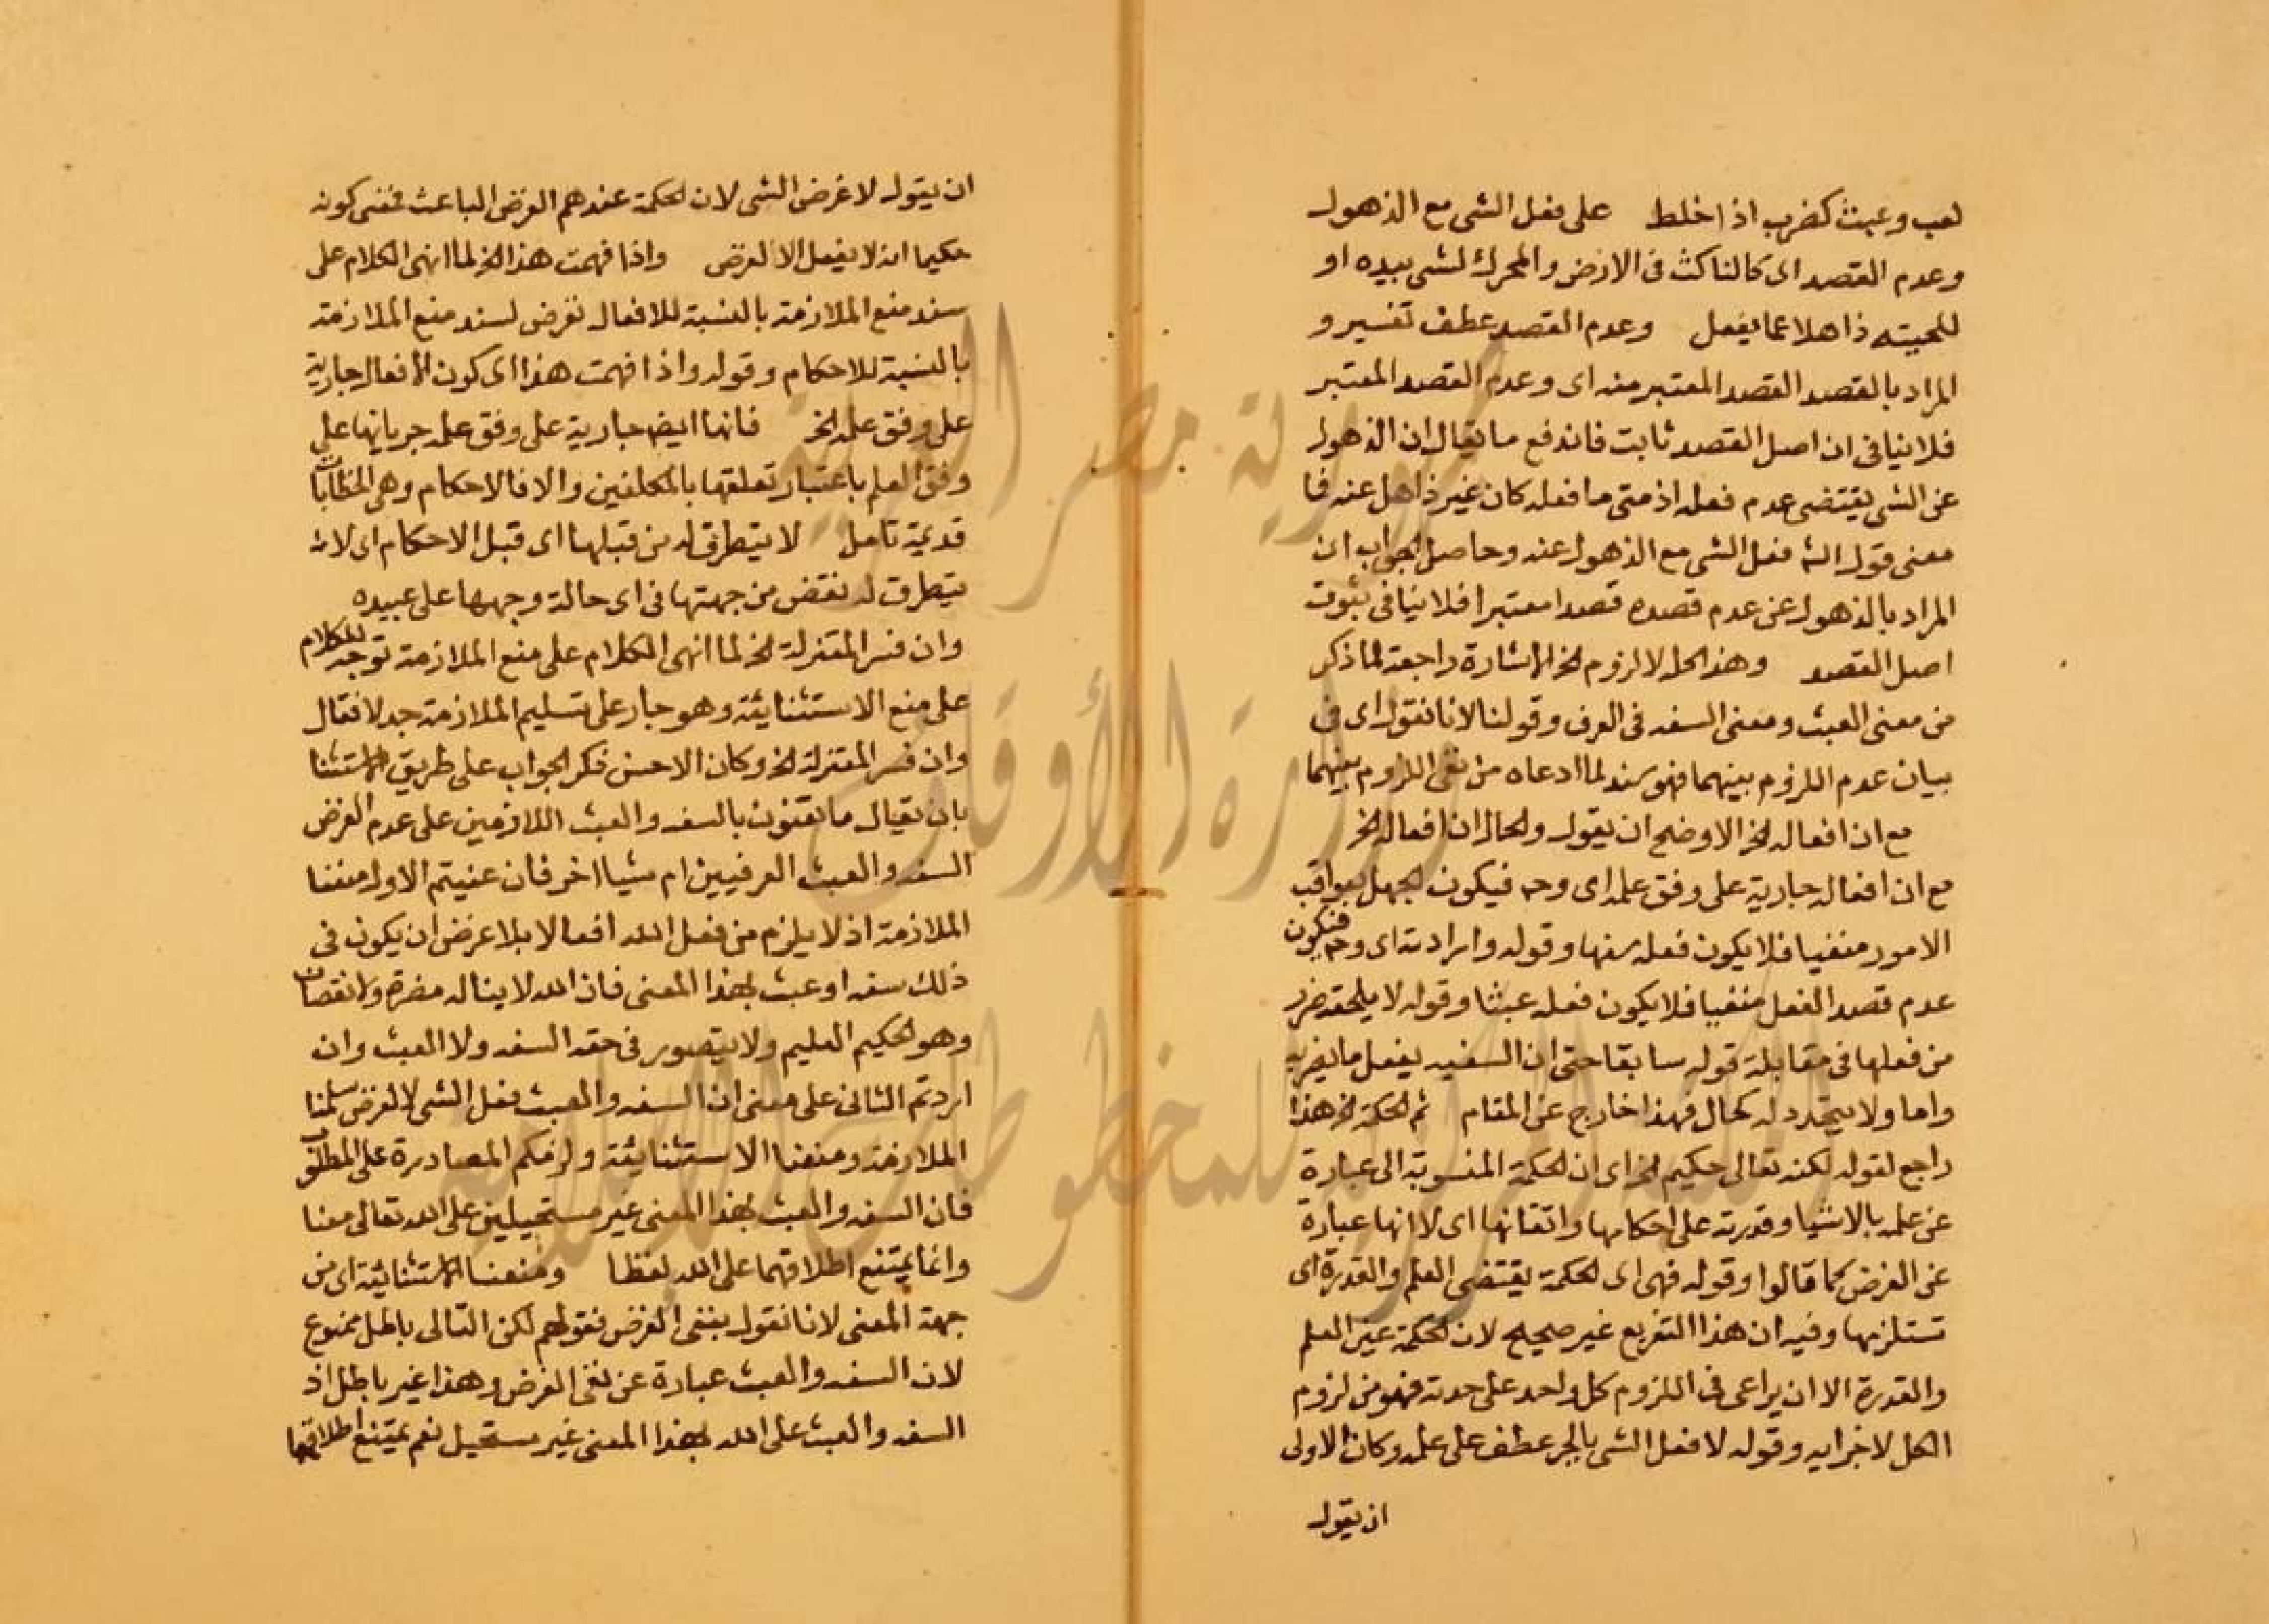 لعب وعبث كضرب اذا خلط على فعل الشى مع الذهول
وعدم القصد اى كالناكث فى الارض والمحرك لشى بيده او
للحيته ذاهلا عما يفعل وعدم القصد عطف تفسير و
المراد بالقصد القصد المعتبر منه اى وعدم القصد المعتبر
فلا ينافى ان اصل القصد ثابت فاندفع ما يقال ان الذهول
عن الشى يقتضى عدم فعله اذ متى ما فعله كان غير ذاهل عنه فما
معنى قول الش فعل الشى مع الذهول عنه وحاصل الجواب ان
المراد بالذهول عن عدم قصده قصدا معتبرا فلا ينافى ثبوت
اصل القصد وهذا كله لا لزوم الخ الاشارة راجعة لما ذكر
من معنى العبث ومعنى السفه فى العرف وقولنا لانا نقول اى فى
بيان عدم اللزوم بينهما فهو سند لما ادعاه من نفى اللزوم بينهما
مع ان افعاله الخ الاوضح ان يقول والحال ان افعاله الخ
مع ان افعاله جارية على وفق علمه اى وح فيكون الجهل بعواقب
الامور منفيا فلا يكون فعله سفها وقوله وارادته اى وح فيكون
عدم قصد الفعل منفيا فلا يكون فعله عبثا وقوله لا يلحقه ضرر
من فعلها فى مقابلة قوله سابقا حتى ان السفيه يفعل ما يضر به
واما ولا يتجدد له كمال فهذا خارج عن المقام ثم الحكمة الخ هذا
راجع لقوله لكنه تعالى حكيم الخ اى ان الحكمة المنسوبة الى عبارة
عن علمه بالاشيا وقدرته على احكامها واتقانها اى لا انها عبارة
عن الغرض كما قالوا وقوله فهى اى الحكمة يقتضى العلم والقدرة اى
تستلزمها وفيه ان هذا التفريع غير صحيح لان الحكمة عين العلم
والقدرة الا ان يراعى فى اللزوم كل واحد على حدته فهو من لزوم
الكل لاجزايه وقوله لا فعل الشى بالجر عطف على علمه وكان الاولى
ان يقول
ان يقول لا غرض الشى لان الحكمة عندهم الغرض الباعث فمعنى كونه
حكيما انه لا يفعل الا لغرض واذا فهمت هذا الخ لما انهى الكلام على
سند منع الملازمة بالنسبة للافعال تعرض لسند منع الملازمة
بالنسبة للاحكام وقوله واذا فهمت هذا اى كون الافعال جارية
على وفق علمه الخ فانها ايضا جارية على وفق علمه جريانها على
وفق العلم باعتبار تعلقها بالمكلفين والا فالاحكام وهى الخطابات
قديمة تامل لا يتطرق له من قبلها اى قبل الاحكام اى لانه
يتطرق له نقض من جهتها فى اى حالة وجهها على عبيده
وان فسر المعتزلة الخ لما انهى الكلام على منع الملازمة توجه للكلام
على منع الاستثنائية وهو جار على تسليم الملازمة جدلا فقال
وان فسر المعتزلة الخ وكان الاحسن ذكر الجواب على طريق الاستثنا
بان يقال ما تعنون بالسفه والعبث اللازمين على عدم الغرض
السفه والعبث العرفيين ام شيا اخر فان عنيتم الاول منعنا
الملازمة اذ لا يلزم من فعل الله افعالا بلا غرض ان يكون فى
ذلك سفه او عبث بهذا المعنى فان الله لا يناله مضرة ولا نقصان
وهو الحكيم العليم ولا يتصور فى حقه السفه ولا العبث وان
اردتم الثانى على معنى ان السفه والعبث فعل الشى لا لغرض سلمنا
الملازمة ومنعنا الاستثنائية ولزمكم المصادرة على المطلوب
فان السفه والعبث بهذا المعنى غير مستحيلين على الله تعالى معنا
وانما يمتنع اطلاقهما على الله لفظا ومنعنا الاستثنائية اى من
جهة المعنى لانا نقول بنفى الغرض فقولهم لكن التالى باطل ممنوع
لان السفه والعبث عبارة عن نفى الغرض وهذا غير باطل اذ
السفه والعبث على الله بهذا المعنى غير مستحيل نعم يمتنع اطلاقهما
جمهورية مصر العربية
وزارة الأوقاف
المكتبة المركزية للمخطوطات الإسلامية